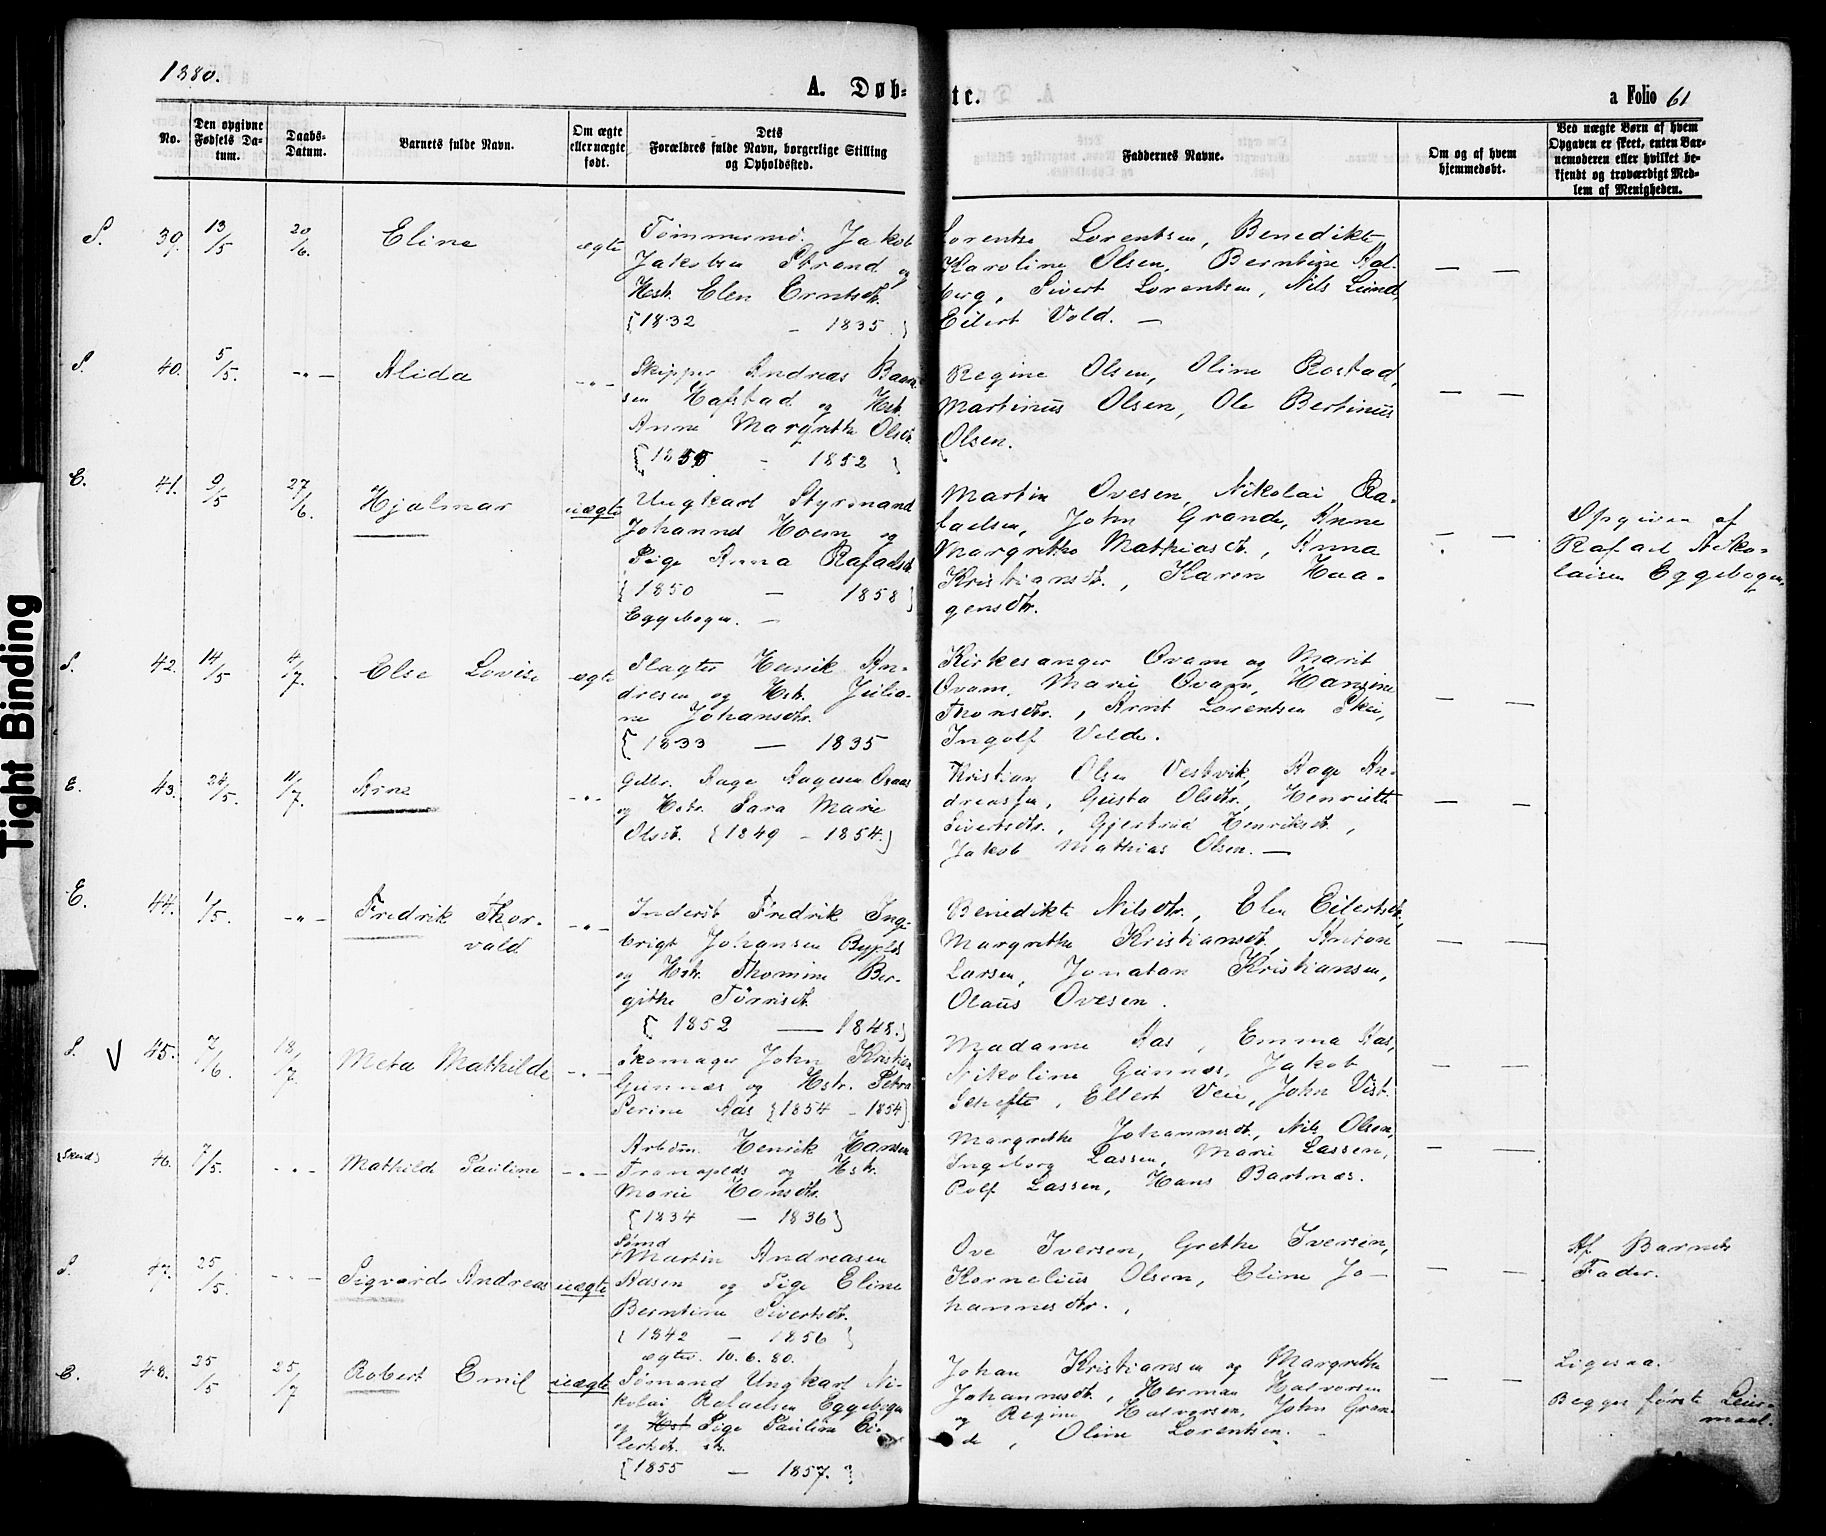 1880.
A. Døb-
te.
a Folio 61
No.
Den opgivne
Fødsels Da-
tum.
Daabs-
Datum.
Barnets fulde Navn.
Om ægte
eller uægte
født.
Dets
Forældres fulde Navn, borgerlige Stilling
og Opholdssted.
Faddernes Navne.
Om og af hvem
hjemmedøbt.
Ved uægte Børn af hvem
Opgaven er skeet, enten Bar-
nemoderen eller hvilket be-
kjendt og troværdigt Med-
lem af Menigheden.
S. 39. 13/5 20/6. Eline ægte
Tømmermd. Jakob
Jakobsen Strand og
Hstr. Elen Erntsdtr.
{1832 - 1835}
Lorents Lorentsen, Benedikte
Karoline Olsen, Berntine Aal-
berg, Sivert Lorentsen, Nils Lund,
Eilert Vold. —
— —
S. 40. 5/5. -"- Alida -"-
Skipper Andreas
sen Hafstad og Hstr.
Anne Margrethe Olsdtr.
{1855 - 1852}
Regine Olsen, Oline Rostad,
Martinus Olsen, Ole Bertinus
Olsen.
— —
E. 41. 9/5 27/6. Hjalmar uægte
Ungkarl Styrmand
Johannes Hoem og
Pige Anna Rafaelsdtr.
{1850 — 1858}
Eggebogen. —
Martin Ovesen, Nikolai Ra-
faelsen, John Grande, Anne
Margrethe Mathiasdt., Anna
Kristiansdtr., Karen Haa-
gensdtr.
— —
Opgiven af
Rafael Niko-
laisen Eggebogen.
S. 42. 14/5 4/7. Else Lovise ægte
Slagter Henrik An-
dresen og Hstr. Julia-
ne Johansdtr.
{1833 — 1835
Kirkesanger Qvam og Marit
Qvam, Marie Qvam, Hansine
Thonsdtr., Arnt Lorentsen Skei,
Ingolf Velde.
— —
E. 43. 24/5. 11/7. Arne -"-
Gdbr. Aage Aagesen
og Hstr. Sara Marie
Olsdt. {1849 - 1854.}
Kristian Olsen Vestvik, Aage An-
dreassen, Gusta Olsdtr., Henriette
Sivertsdtr., Gjertrud Henriksdt.,
Jakob Mathias Olsen. —
— —
E. 44. 1/5. -"- Fredrik Thor-
vald. -"-
Inderst Fredrik Inge-
brigt Johansen Byplds
og Hstr. Thomine Ber-
githe Tørrisdt.
{1852 — 1848.}
Benedikte Nilsdtr., Elen Eilertsdt.,
Margrethe Kristiansdt., Anton
Larsen, Jonatan Kristiansen,
Olaus Ovesen.
— —
S. V 45. 7/6. 18/7 Meta Mathilde -"-
Skomager John Kristian
Gunnes og Hstr. Petra
Perine Aas {1854 - 1854}
Madame Aas, Emma Aas,
Nikoline Gunnes, Jakob
Schefte, Ellert Veie, John Vist.
— —
46. 7/5. -"- Mathilde Pauline -"-
Arbdm. Henrik Hansen
Tranaplds og Hstr.
Marie Hansdtr.
{1834 — 1836}
Margrethe Johannesdt., Nils Olsen,
Ingeborg Lassen, Marie Lassen,
Rolf Lassen, Hans Bartnes.
— —
S. 47. 25/5. -"- Sigvard Andreas uægte
Sømd
Martin Andreasen
Aasen og Pige Eline
Berntine Sivertsdt.
{1842 — 1856}
ægtev. 10.6.80.
Ove Iversen, Grethe Iversen,
Kornelius Olsen, Eline Jo-
hannesdtr.,
— —
Af Barnets
Fader.
E. 48. 25/5 25/7 Robert Emil uægte
Sømand Ungkarl Ni-
kolai Rafaelsen Eggebogen
og Hst Pige Pauline Ei-
lertsdt.
{1855 — 1857.}
Johan Kristiansen og Margrethe
Johannesdt., Herman Halvorsen
og Regine Halvorsen, John Gran-
de, Oline Lorentsen.
— —
Ligesaa.
Begges første Leier-
maal.
Tight Binding